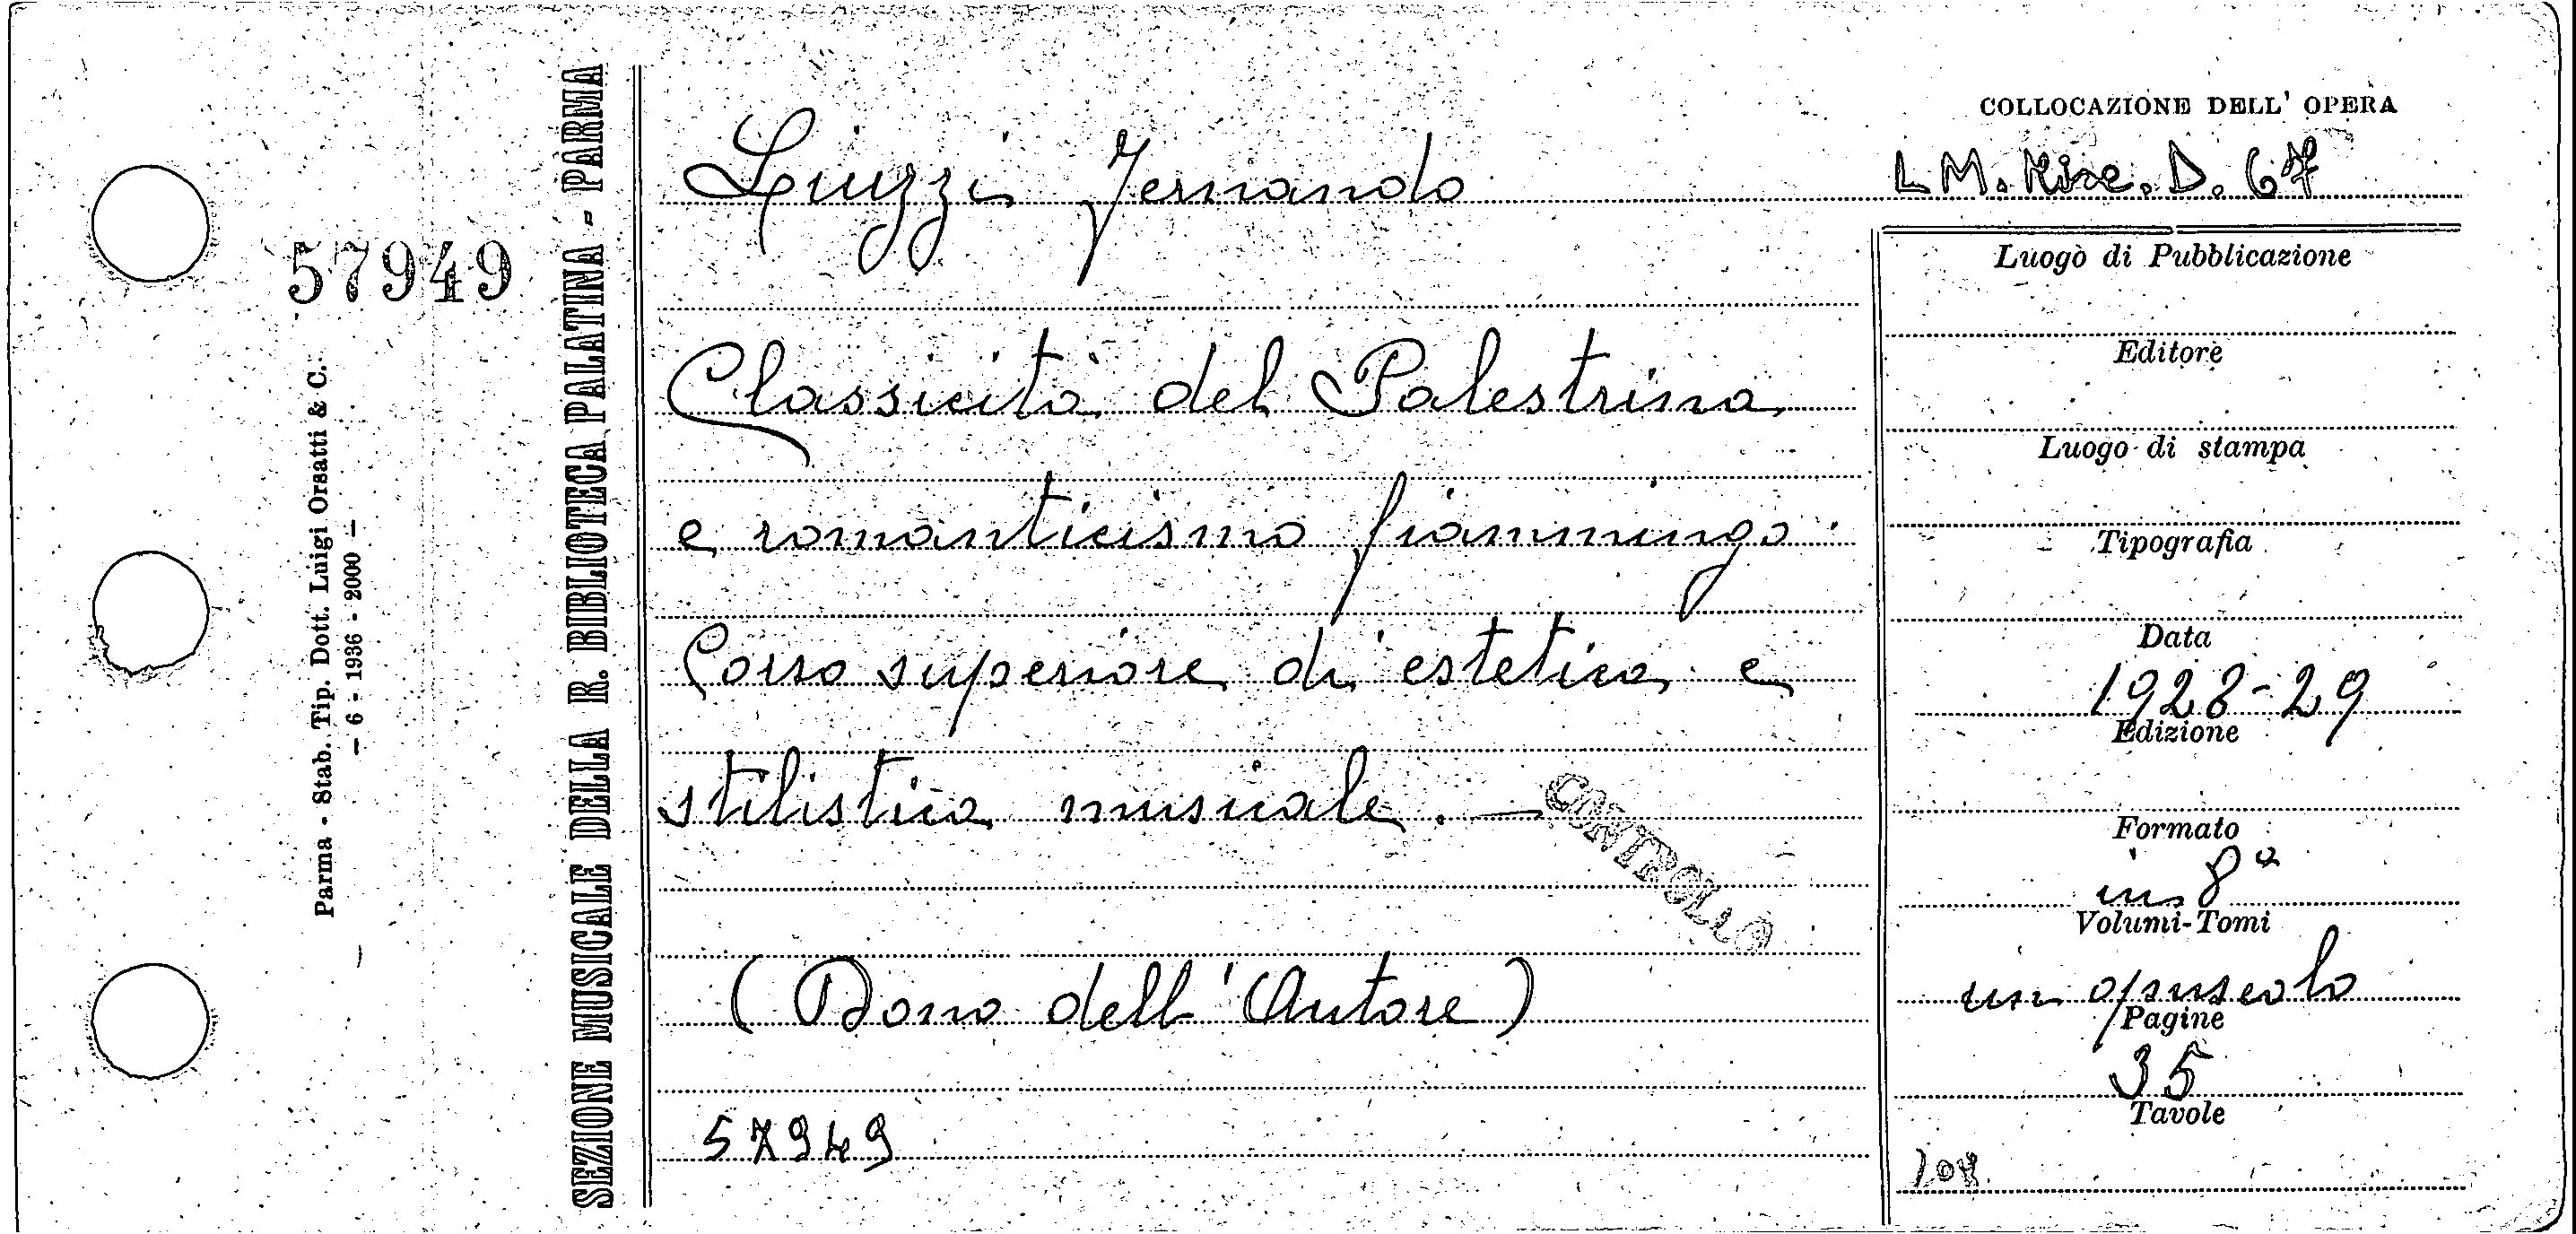 57949
Parma - Stab. Tip. Dott. Luigi Orsatti & C.
— 6 - 1936 - 2000 —
SEZIONE MUSICALE DELLA R. BIBLIOTECA PALATINA - PARMA
Liuzzi Fernando
Classicità del Palestrina
e romanticismo fiammingo.
Corso superiore di estetica e
stilistica musicale. —
CONTROLLO
(Dono dell'Autore)
57949
COLLOCAZIONE DELL' OPERA
L M. Misc. D. 67
Luogo di Pubblicazione
Editore
Luogo di stampa
Tipografia
Data
1928-29
Edizione
Formato
in 8°
Volumi-Tomi
un opuscolo
Pagine
35
Tavole